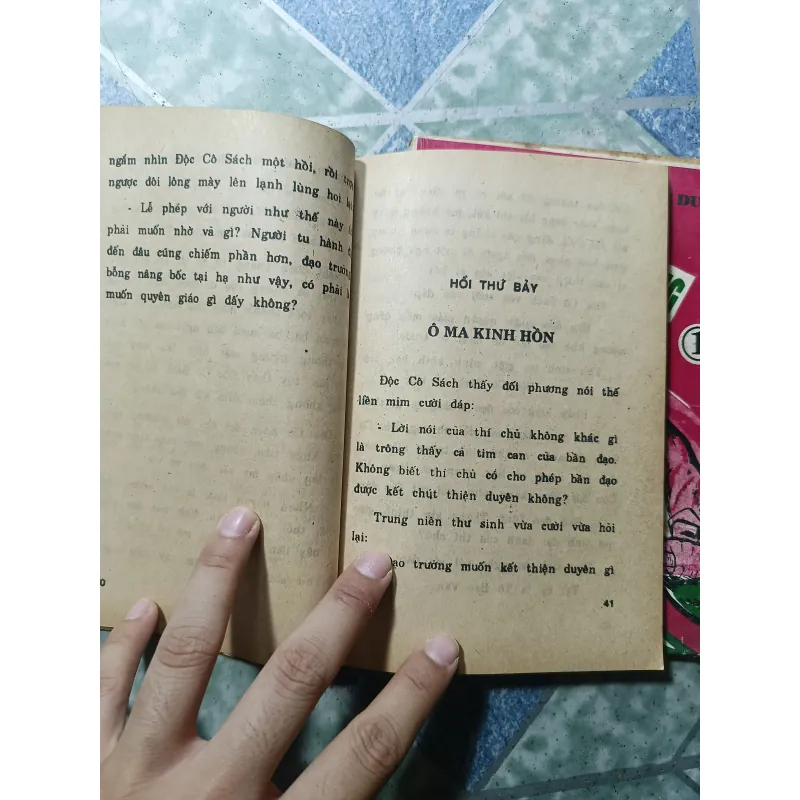 ngắm nhìn Độc Cô Sách một hồi, rồi
ngược đôi lông mày lên lạnh lùng hoi
- Lể phép với người như thế này
phải muốn nhờ vả gì? Người tu hành
đến đâu cúng chiếm phần hơn, đạo trưởng
bỗng nâng bốc tại hạ như vậy, có phải
muốn quyên giáo gì đấy không?
HỒI THỨ BẢY
Ô MA KINH HỒN
Độc Cô Sách thấy đối phương nói thế
liền mim cười đáp:
- Lời nói của thí chủ không khác gì
là trông thấy cả tim can của bần đạo.
Không biết thí chủ có cho phép bần đạo
được kết chút thiện duyên không?
Trung niên thư sinh vừa cười vừa hỏi
lại:
trưởng muốn kết thiện duyên gì
41
DU
1